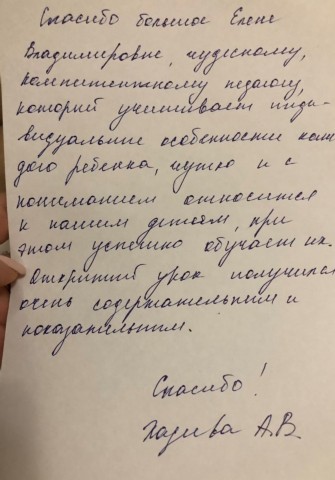 Спасибо большое Елене
Владимировне, чудесному,
компетентному педагогу,
который учитывает инди-
видуальные особенности каж
дого ребенка, чутко и с
пониманием относится
к нашим детям, при
этом успешно обучает их.
Открытый урок получился
очень содержательным и
показательным.
Спасибо!
А.В.